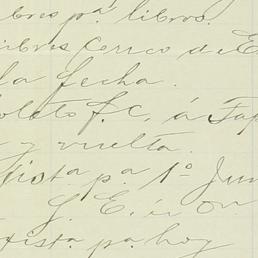 bres pa. libros.
libres correo de E
la fecha.
boleto f. c. á Tap
y vuelta.
fista pa. 1º Jun
G. E. ú on
xista. pa. hoy